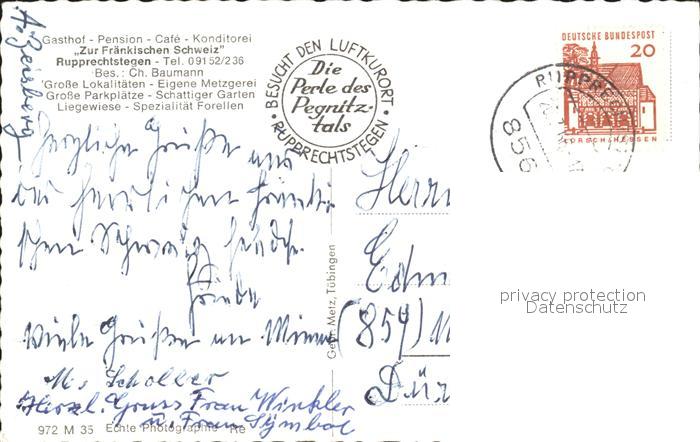 Gasthof - Pension - Café - Konditorei
„Zur Fränkischen Schweiz"
Rupprechtstegen - Tel. 09152/236
Bes.: Ch. Baumann
Große Lokalitäten - Eigene Metzgerei
Große Parkplätze - Schattiger Garten
Liegewiese - Spezialität Forellen
BESUCHT DEN LUFTKURORT
Die
Perle des
Pegnitz-
tals
RUPPRECHTSTEGEN
DEUTSCHE BUNDESPOST
20
LORSCH/HESSEN
RUPPRE
856
Herzliche Grüße aus
der herrlichen Fränki-
schen Schweiz
Viele Grüße
Scholler
Herzl. Gruss Frau Winkler
u. Frau
Herrn
Edm
(859)
Gebr. Metz, Tübingen
972 M 35 Echte Photographie
privacy protection
Datenschutz